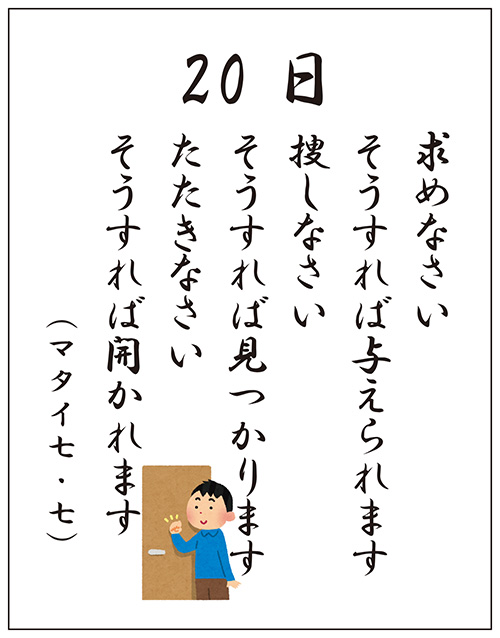 20 日
求めなさい
そうすれば与えられます
捜しなさい
そうすれば見つかります
たたきなさい
そうすれば開かれます
（マタイ七・七）